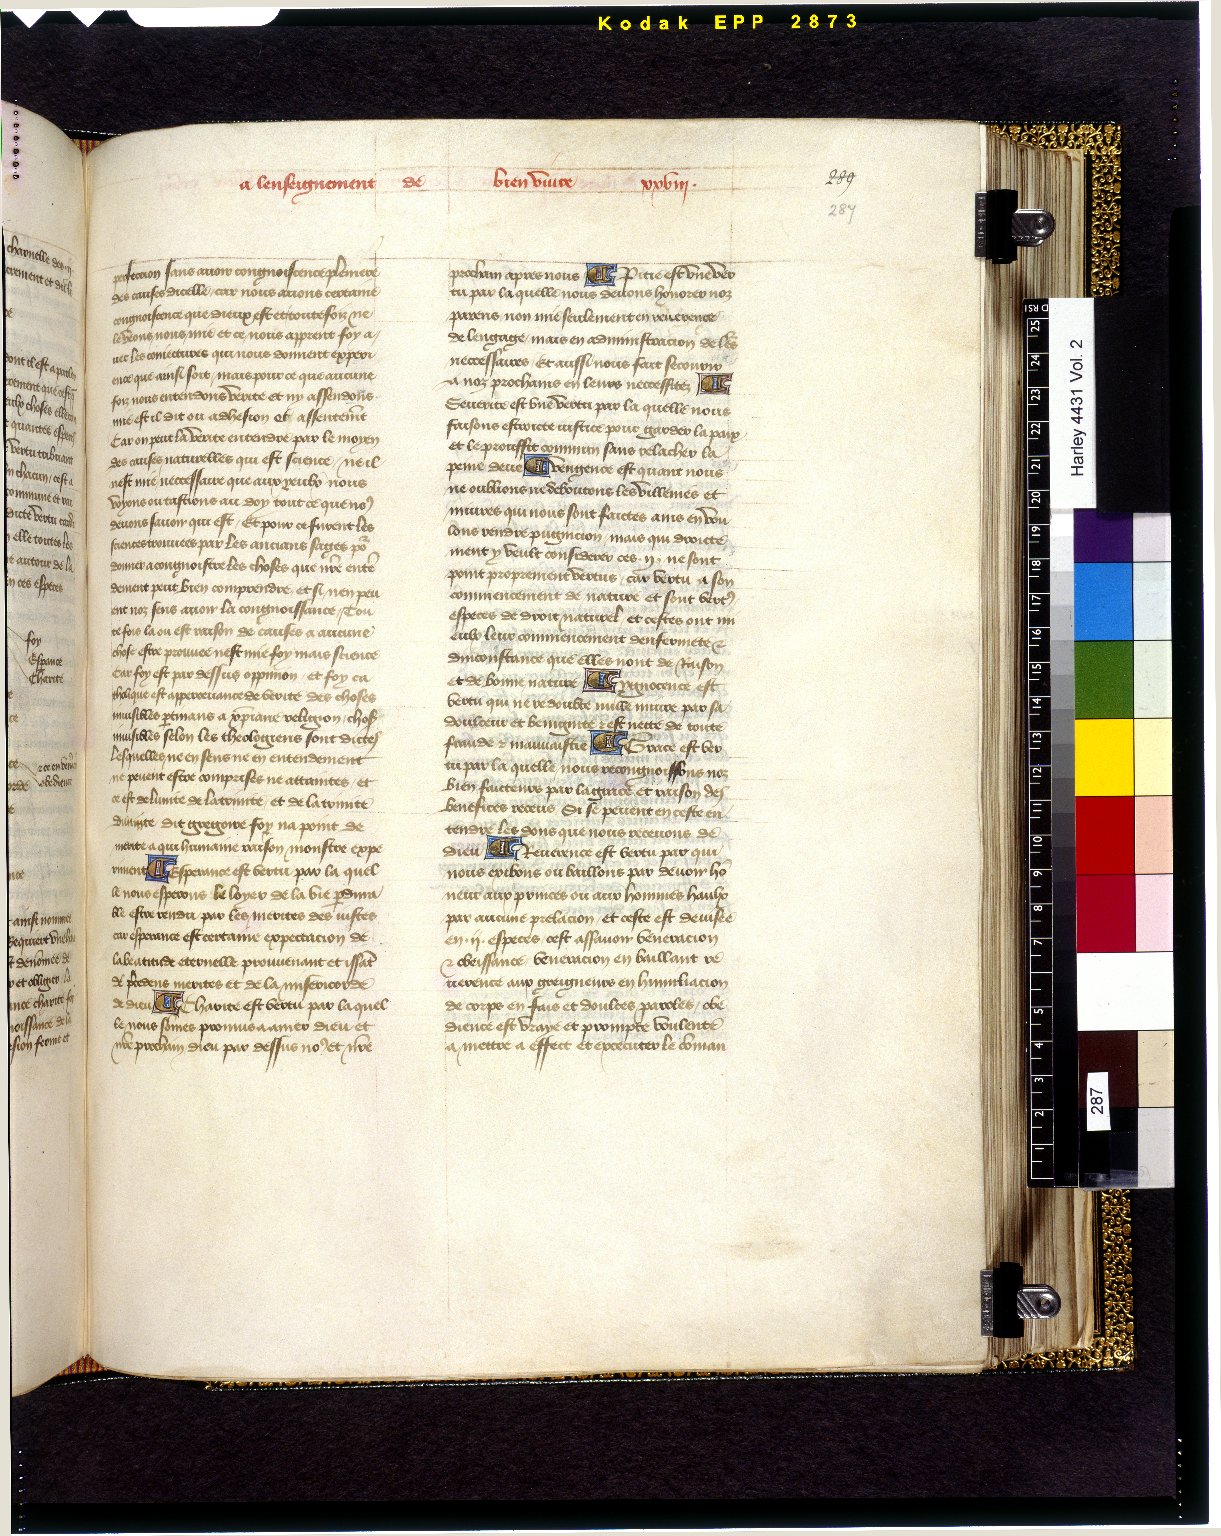 Kodak EPP 2873
a lenseignement de bien vivre xxviij.
289
287
perfeccion sans avoir congnoiscence pleniere
des causes dicelle, car nous avons certaine
congnoiscence que dieux est et toutefoiz ne
le veons nous mie et ce nous aprent foy a
vec les coniectures qui nous donnent experi
ence que ainsi soit, mais pour ce que aucune
foiz nous entendons verite et ny assendons
mie est il dit ou adhesion ob assentemt
Car on peut la verite entendre par le moyen
des causes naturelles qui est science, ne il
nest mie necessaire que aux yeulx nous
voyons ou tastions au doy tout ce que no9
devons savoir qui est, Et pour ce furent les
sciences trouvees par les ancians sages po
donner a congnoistre les choses que nre ente
dement peut bien comprendre, et si nen peu
ent noz sens avoir la congnoissance, Tou
tefois la ou est raison de causes a aucune
chose estre prouvee nest mie foy mais science
Car foy est par dessus oppinion, et foy ca
tholique est appercevance de verite des choses
invisibles ptenans a xpiane religion, choses
invisibles selon les theologiens sont dictes
lesquelles ne en sens ne en entendement
ne peuent estre comprises ne attaintes, et
ce est de lunite de la trinite, et de la trinite
dunite dit gregoire foy na point de
merite a qui humaine raison monstre expe
riment Esperance est vertu par la quel
le nous esperons le loyer de la vie pdura
ble estre rendu par les merites des iustes
car esperance est certaine expectacion de
la beatitude eternelle prouvenant et issat
de pcedens merites et de la misericorde
de dieu Charite est vertu par laquel
le nous somes promus a amer dieu et
nre prochain dieu par dessus no9 et nre
prochain apres nous Pitie est une ver
tu par la quelle nous devons honorer noz
parens, non mie seulement en reverence
de lengage, mais en administracion de les
necessaires, Et aussi nous fait secourir
a noz prochains en leurs necessitez
Severite est une vertu par la quelle nous
faisons estroicte iustice pour garder la paix
et le prouffit commun sans relacher la
peine deue Vengence est quant nous
ne oublions ne deboutons les villenies et
iniures qui nous sont faictes ains en vou
lons rendre pugnicion, mais qui droicte
ment y veult considerer ces .ij. ne sont
point proprement vertus, car vertu a son
commencement de nature et sont vert9
especes de droit naturel, et cestes ont mi
eulx leur commencement denfermete &
dinconstance que elles nont de raison
et de bonne nature Ygnocence est
vertu qui ne redoubte nulle iniure par sa
doulceur et benignite & est nette de toute
fraude & mauvaistie Grace est ver
tu par la quelle nous recongnoissons noz
bien faicteurs par la grace et raison des
benefices receus Si se peuent en ceste en
tendre les dons que nous recevons de
dieu Reverence est vertu par qui
nous exibons ou baillons par devoir ho
neur aux princes ou aux hommes haulx
par aucune prelacion, et ceste est devisee
en .ij. especes cest assavoir veneracion
& obeissance, veneracion en baillant re
verence aux greigneurs en humiliacion
de corps en fais et doulces paroles, obe
dience est vraye et prompte voulente
a mettre a effect et executer le coman
foy
Espance
Charite
Harley 4431 Vol. 2
287